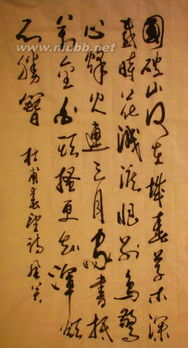 www.bkill.com
國破山河在城春草木深
感時花濺淚恨別鳥驚
心烽火連三月家書抵
萬金白頭搔更短渾欲
不勝簪
杜甫春望詩